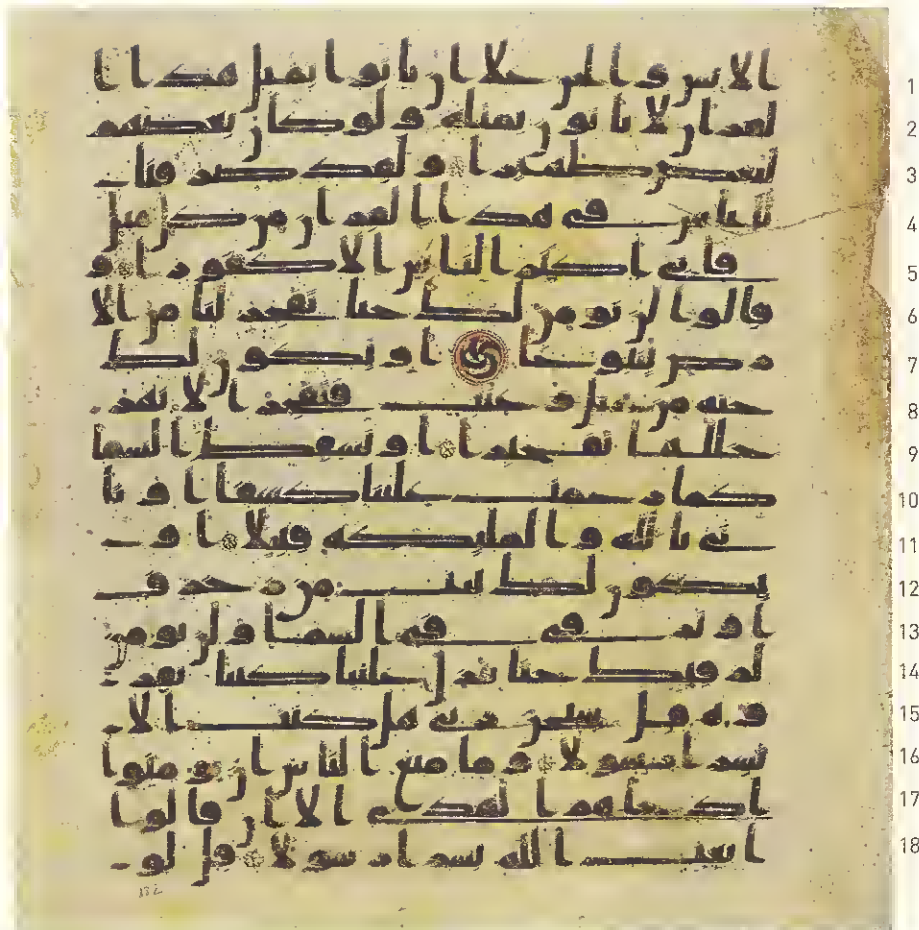 الانس والجن علا ان ياتوا بمثل هذا ا 1
لقران لا ياتون بمثله ولو كان بعضهم 2
لبعض ظهيرا ولقد صرفنا 3
للناس في هذا القران من كل مثل 4
فابى اكثر الناس الا كفورا و 5
قالوا لن نومن لك حتا تفجر لنا من الا 6
رض ينبوعا او تكون لك 7
جنه من نخيل وعنب فتفجر الانهر 8
خللها تفجيرا او تسقط السما 9
كما زعمت علينا كسفا او تا 10
تي بالله والمليكه قبيلا او 11
يكون لك بيت من زخرف 12
او ترقى في السما ولن نومن 13
لرقيك حتا تنزل علينا كتبا نقر 14
وه قل سبحن ربي هل كنت الا 15
بشرا رسولا وما منع الناس ان يومنوا 16
اذ جاهم الهدى الا ان قالوا 17
ابعث الله بشرا رسولا قل لو 18